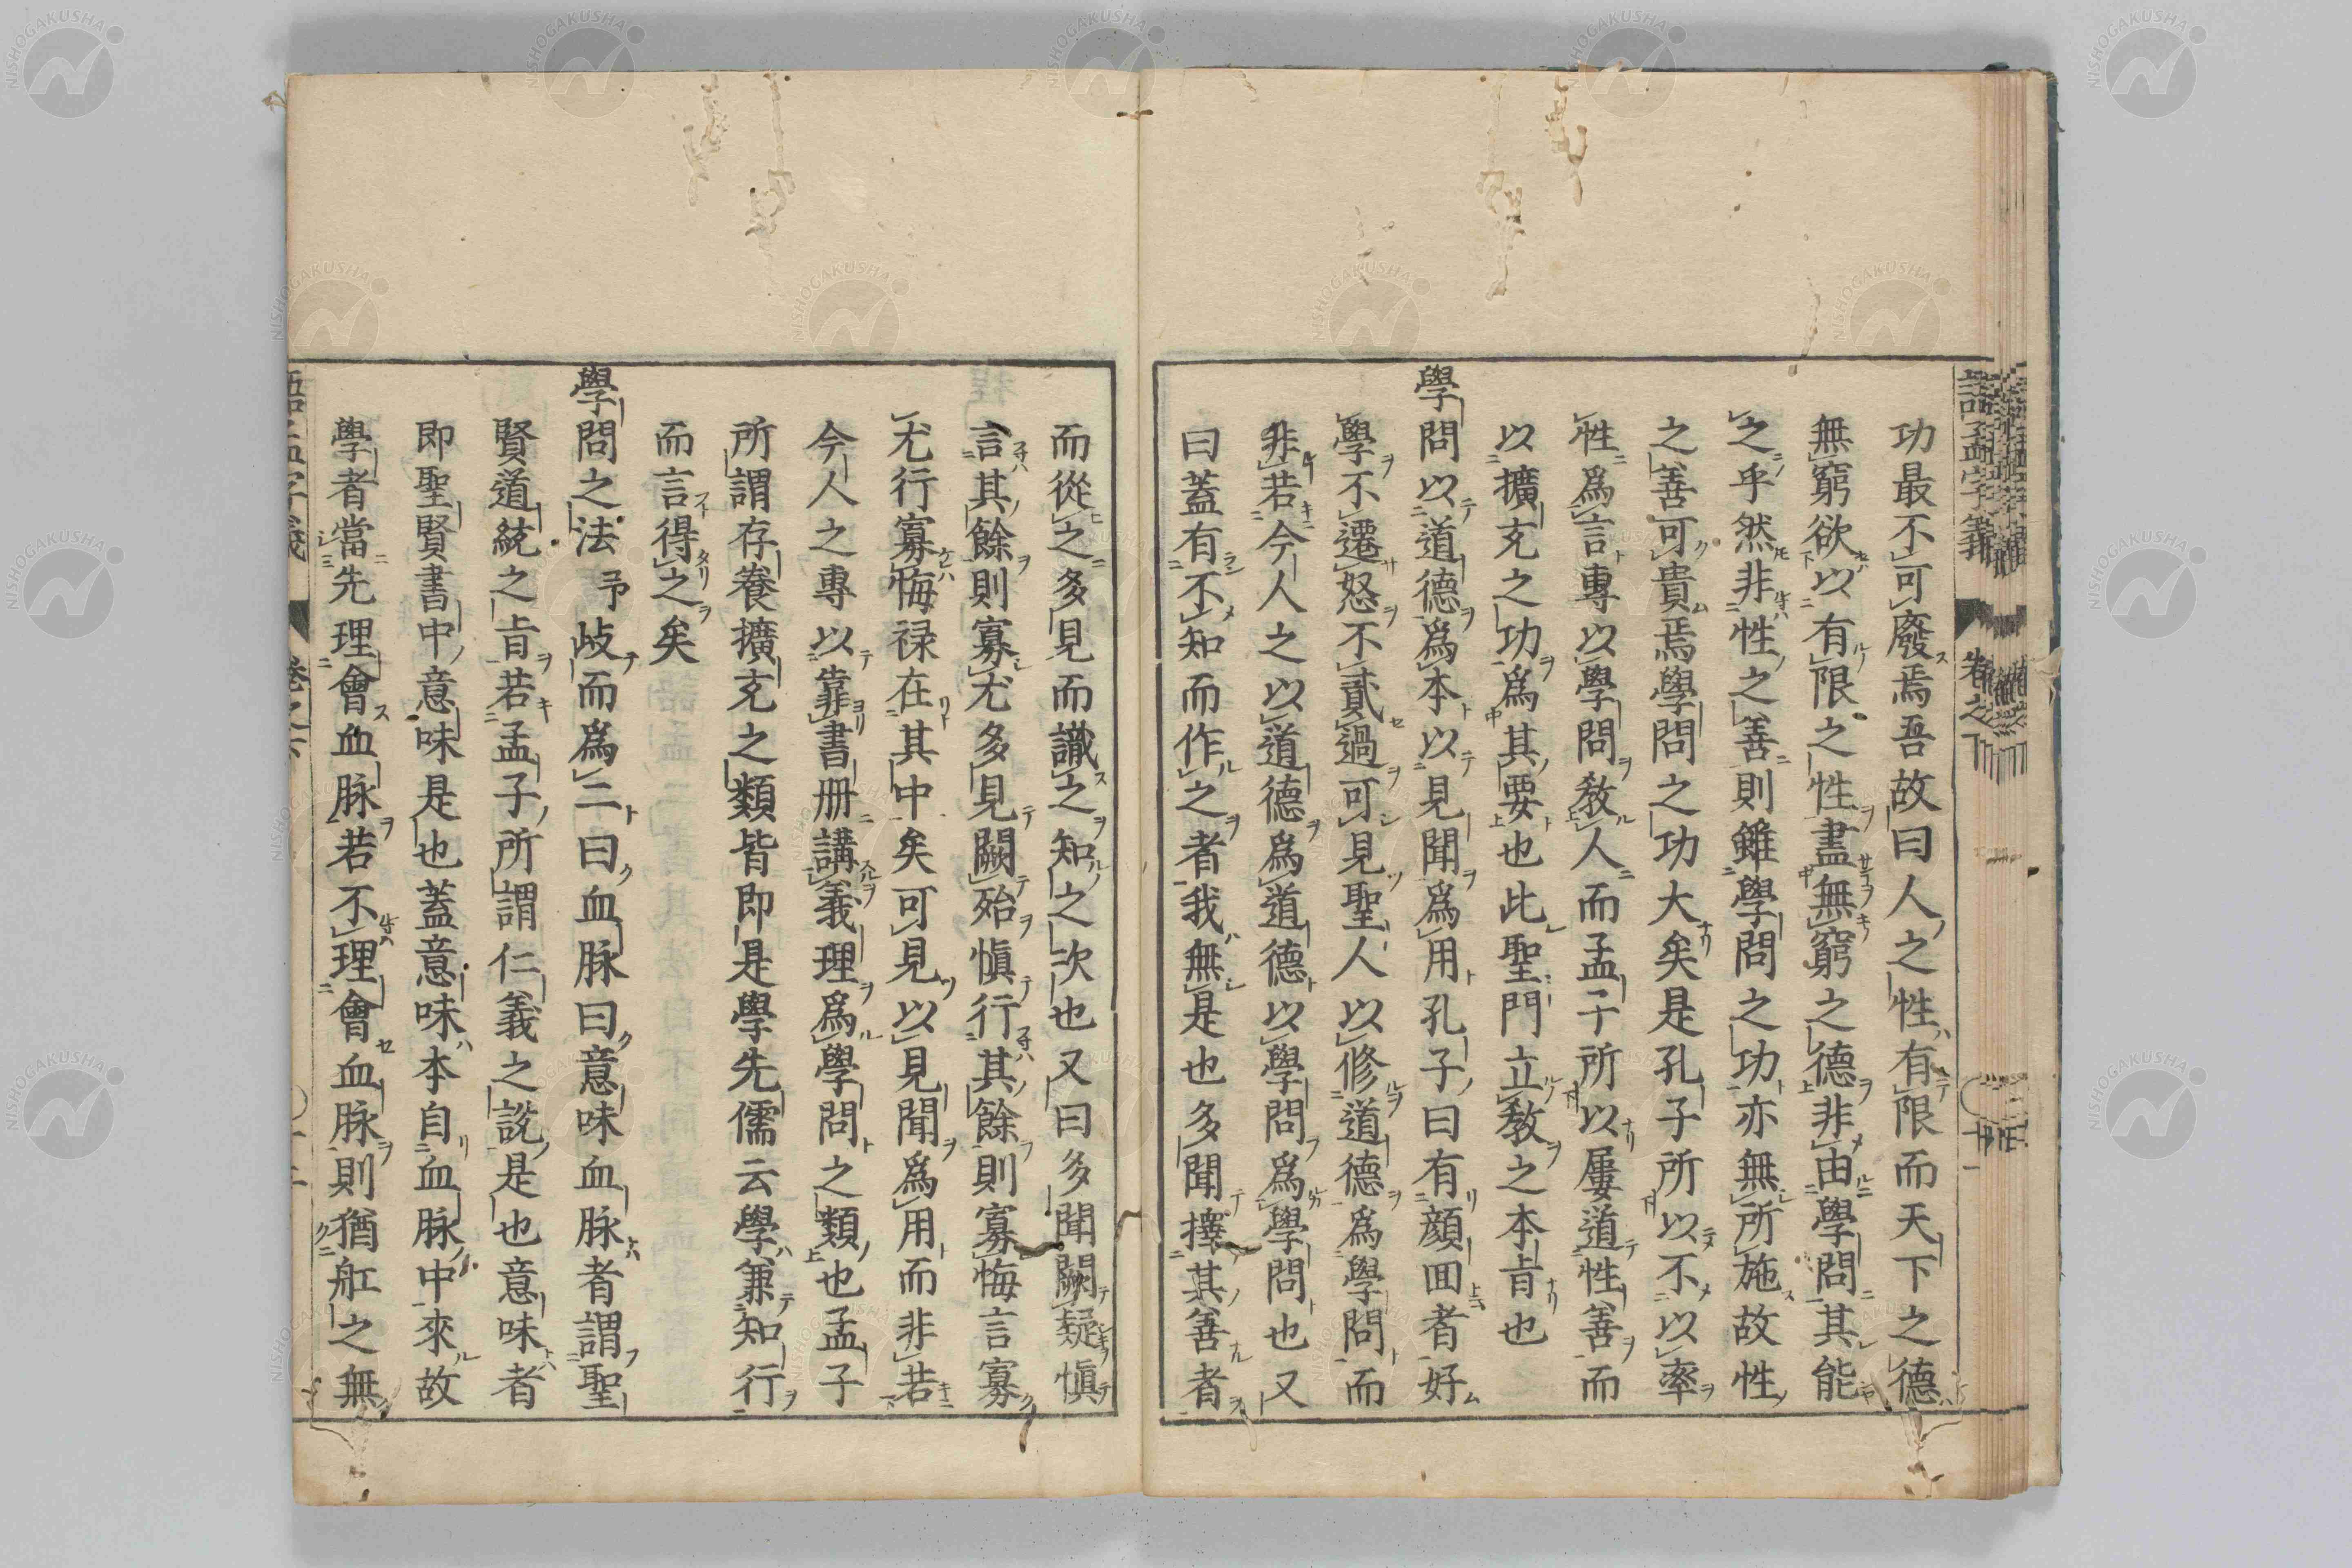 功最不可廢焉吾故曰人之性有限而天下之德
無窮欲以有限之性盡無窮之德非由學問其能
之乎然非性之善則雖學問之功亦無所施故性
之善可貴焉學問之功大矣是孔子所以不以率
性爲言專以學問教人而孟子所以屢道性善而
以擴充之功爲其要也此聖門立教之本旨也
學問以道德爲本以見聞爲用孔子曰有顔回者好
學不遷怒不貳過可見聖人以修道德爲學問而
非若今人之以道德爲道德以學問爲學問也又
曰蓋有不知而作之者我無是也多聞擇其善者
而從之多見而識之知之次也又曰多聞闕疑愼
言其餘則寡尤多見闕殆愼行其餘則寡悔言寡
尤行寡悔祿在其中矣可見以見聞爲用而非若
今人之專以靠書冊講義理爲學問之類也孟子
所謂存養擴充之類皆卽是學先儒云學兼知行
而言得之矣
學問之法予歧而爲二曰血脉曰意味血脉者謂聖
賢道統之旨若孟子所謂仁義之說是也意味者
卽聖賢書中意味是也蓋意味本自血脉中來故
學者當先理會血脉若不理會血脉則猶舡之無
語孟字義
卷之下
NISHOGAKUSHA